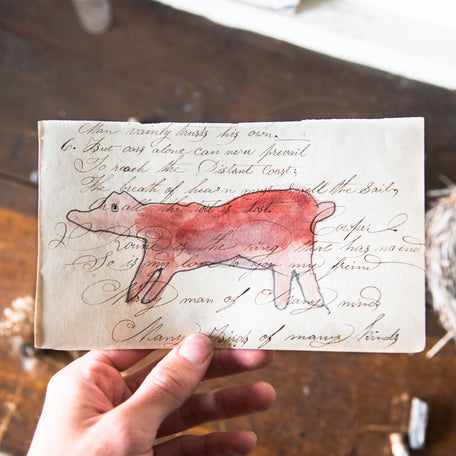 Man vainly trusts his own.
6. But ours alone can never prevail
To reach the Distant Coast;
The breath of heav'n must swell the Sail,
Or all the toil is lost.
Cowper
2 Round is the ring that has no end
So is my love to you my friend
Many man of Many minds
Many Birds of many kinds